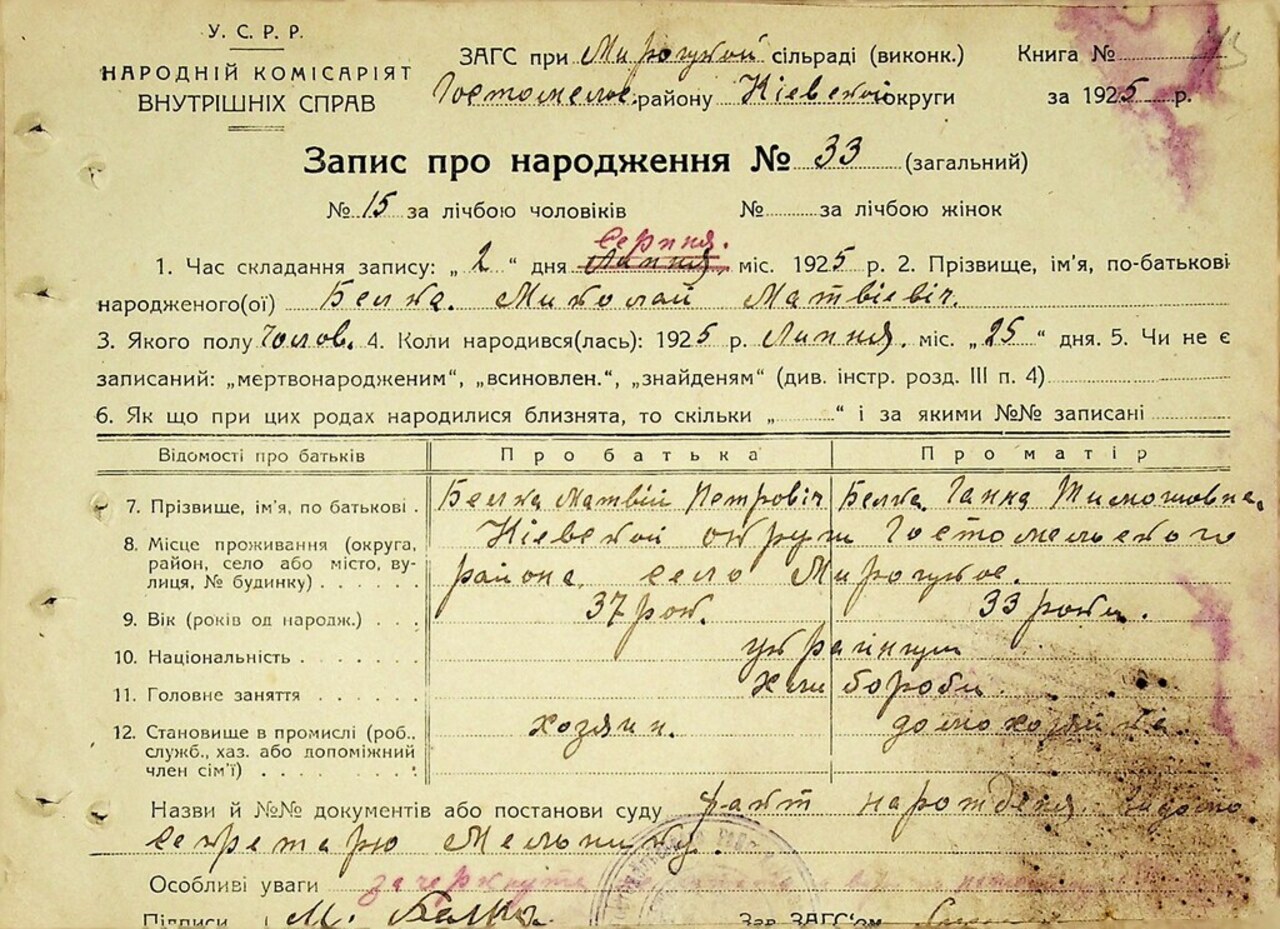 У. С. Р. Р.
НАРОДНІЙ КОМІСАРІЯТ
ВНУТРІШНІХ СПРАВ
ЗАГС при Мироцкой сільраді (виконк.)
Гостомельс. району Кіевской округи
Книга №
за 1925 р.
Запис про народження № 33 (загальний)
№ 15 за лічбою чоловіків № за лічбою жінок
Серпня.
1. Час складання запису: „ 2 “ дня Липня, міс. 1925 р. 2. Прізвище, ім’я, по-батькові
народженого(ої) Белка. Миколай Матвіевіч.
3. Якого полу чолов. 4. Коли народився(лась): 1925 р. Липня. міс. „25“ дня. 5. Чи не є
записаний: „мертвонародженим“, „всиновлен.“, „знайденям“ (див. інстр. розд. III п. 4)
6. Як що при цих родах народилися близнята, то скільки „ “ і за якими №№ записані
Відомості про батьків Про батька Про матір
7. Прізвище, ім’я, по батькові . Белка Матвій Петровіч Белка Ганна Тимошовна.
8. Місце проживання (округа, Кіевской округи Гостомельского
район, село або місто, ву-
лиця, № будинку) района село Мироцкое.
9. Вік (років од народж.) 37 рок. 33 роки.
10. Національність українци
11. Головне заняття хлибороби.
12. Становище в промислі (роб., хозяин. домохозяйка.
служб., хаз. або допоміжний
член сім’ї)
Назви й №№ документів або постанови суду факт народженя видомо
Секретарю Мельнику.
Особливі уваги зачеркнуте
Підписи М. Белка Зав. ЗАГС’ом